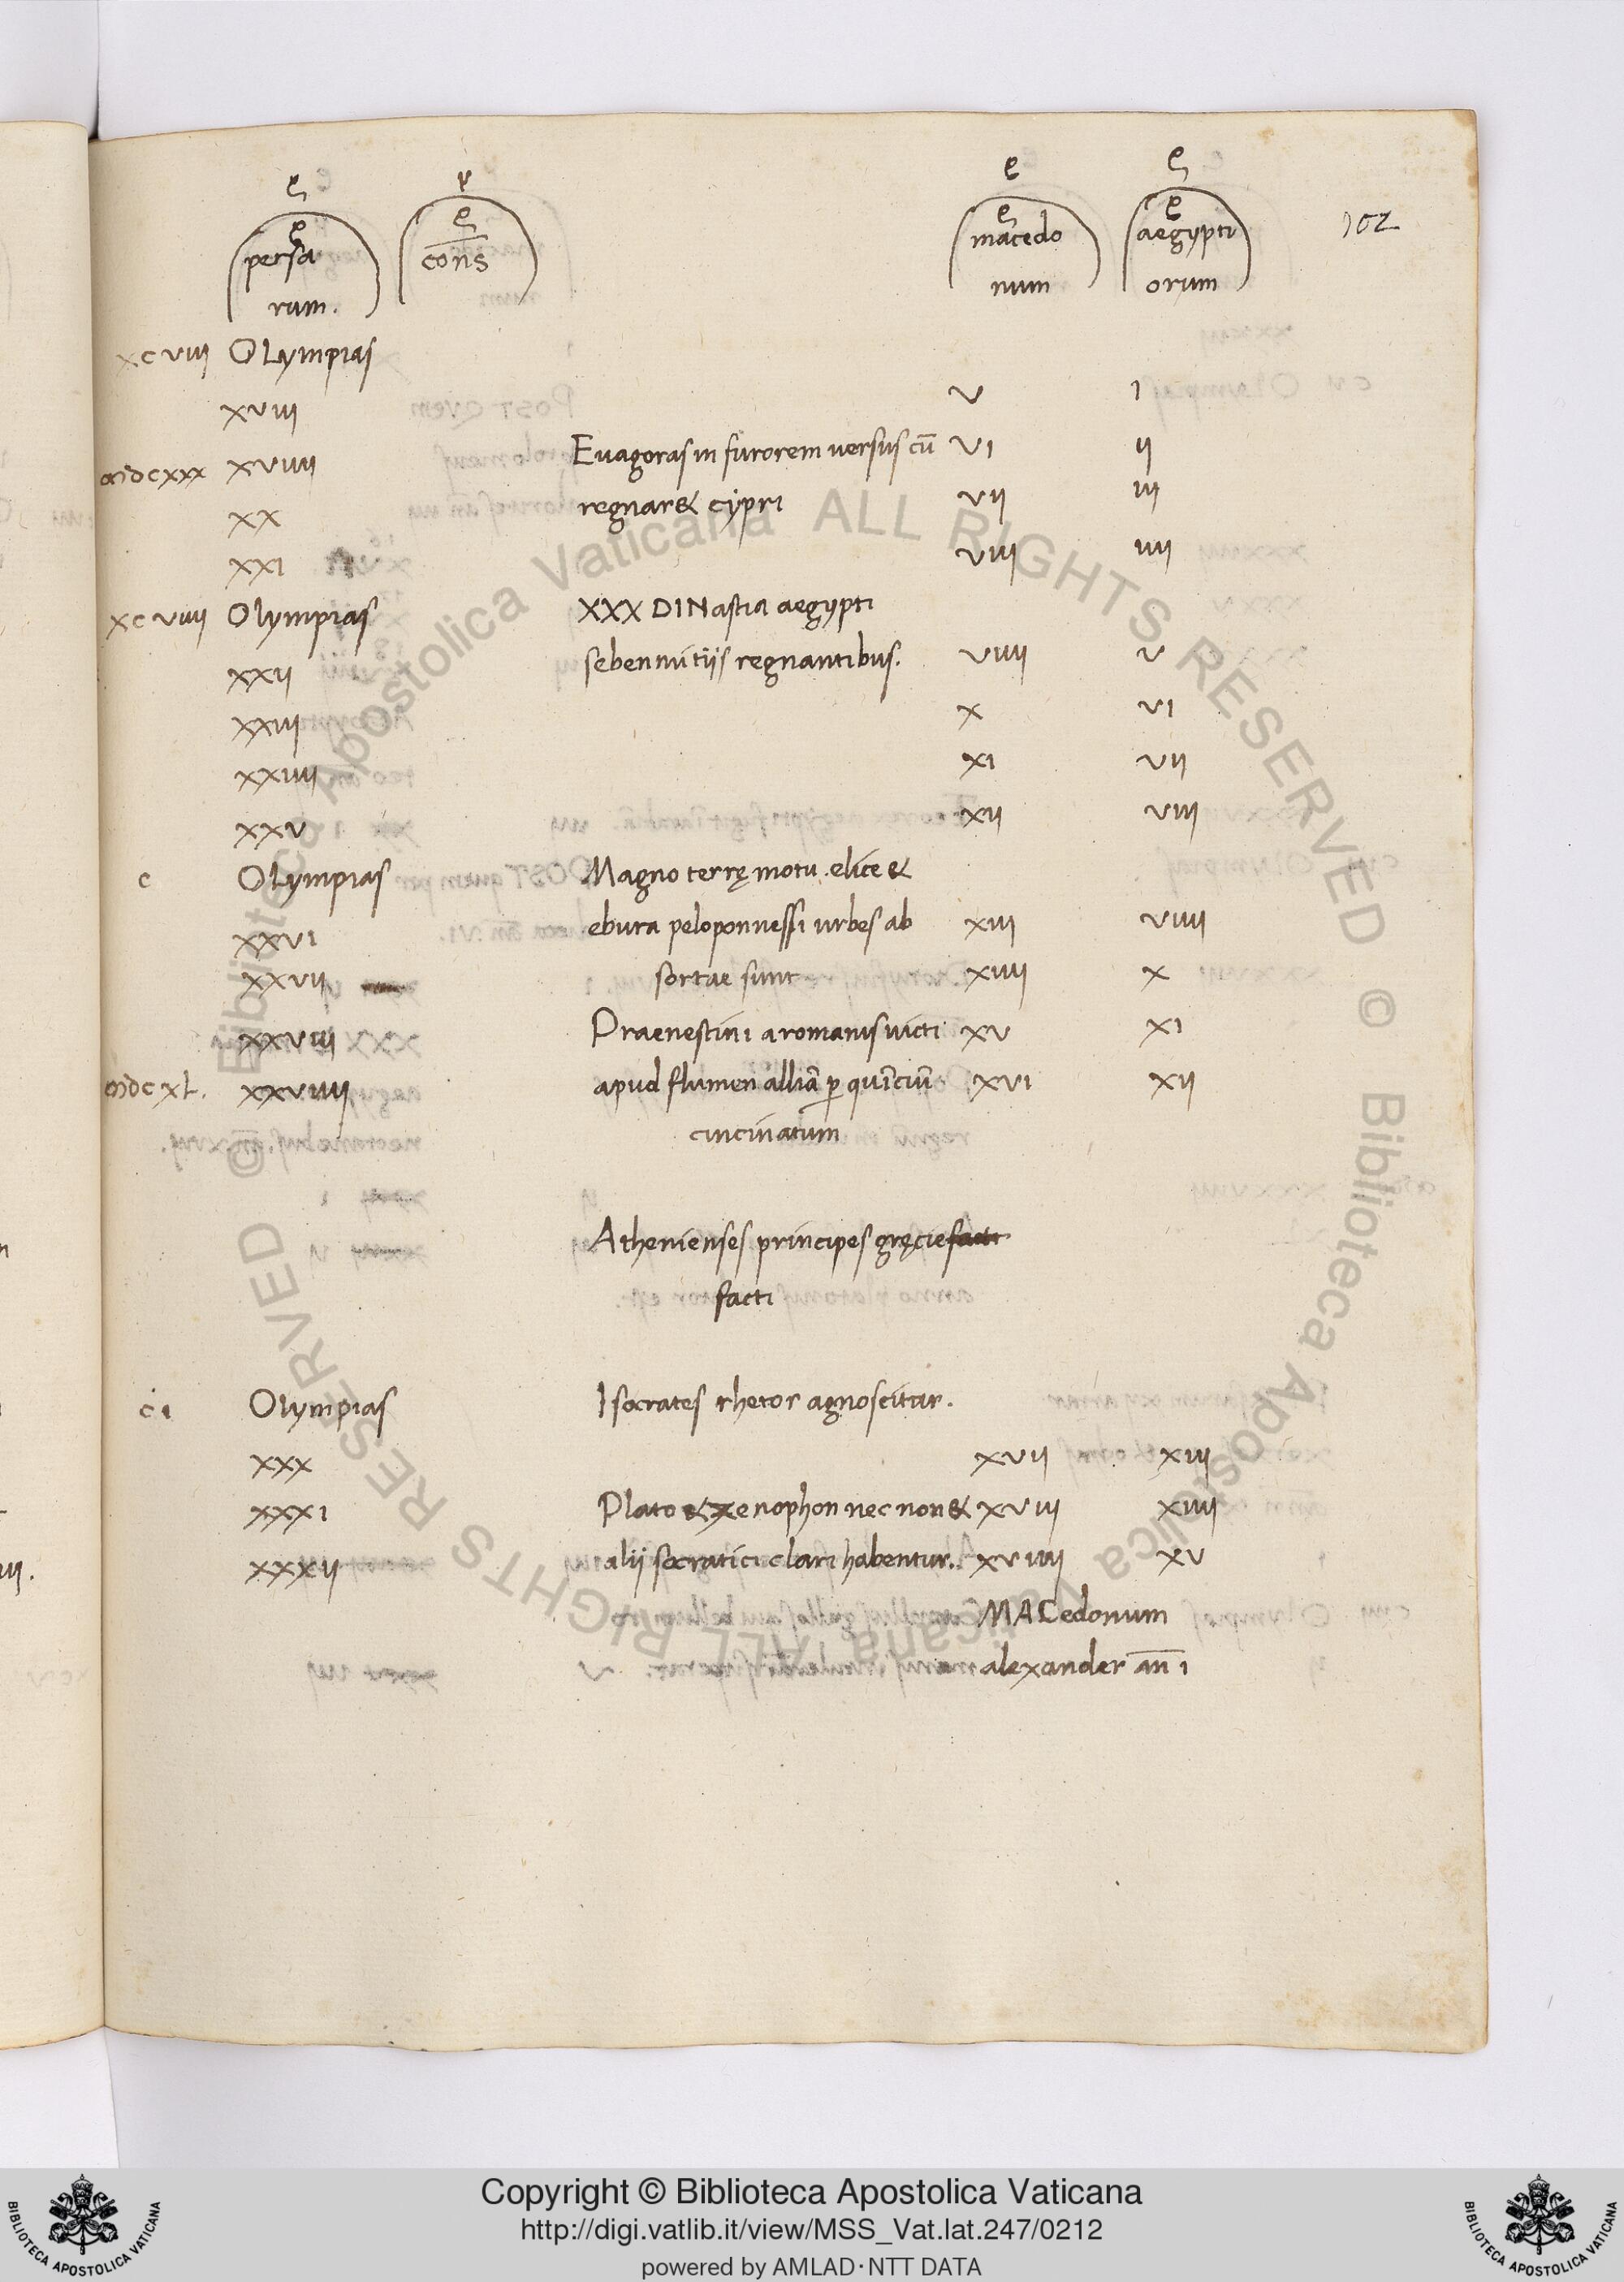 102
persa cons macedo aegypti
rum. num orum
xcviii OLympias
xviii v i
mdcxxx xviiii Euagoras in furorem uersus cū vi ii
xx regnar& cypri vii iii
xxi viii iiii
xcviiii Olympias XXX DINastia aegypti
xxii sebennitiis regnantibus. viiii v
xxiii x vi
xxiiii xi vii
xxv xii viii
c OLympias Magno terrę motu . elice &
xxvi ebura peloponnessi urbes ab xiii viiii
xxvii sortae sunt xiiii x
xxviii Praenestini a romanis uicti xv xi
mdcxL. xxviiii apud flumen alliā p quīciū xvi xii
cincinatum
Athenienses principes gręcie facti
facti
ci Olympias Isocrates rhetor agnoscitur.
xxx xvii xiii
xxxi Plato & xenophon nec non & xviii xiiii
xxxii alii socratici clari habentur. xviiii xv
MACedonum
alexander an̄ i
Copyright © Biblioteca Apostolica Vaticana
http://digi.vatlib.it/view/MSS_Vat.lat.247/0212
powered by AMLAD·NTT DATA
BIBLIOTECA APOSTOLICA VATICANA
BIBLIOTECA APOSTOLICA VATICANA
© Biblioteca Apostolica Vaticana ALL RIGHTS RESERVED © Biblioteca Apostolica Vaticana ALL RIGHTS RESERVED